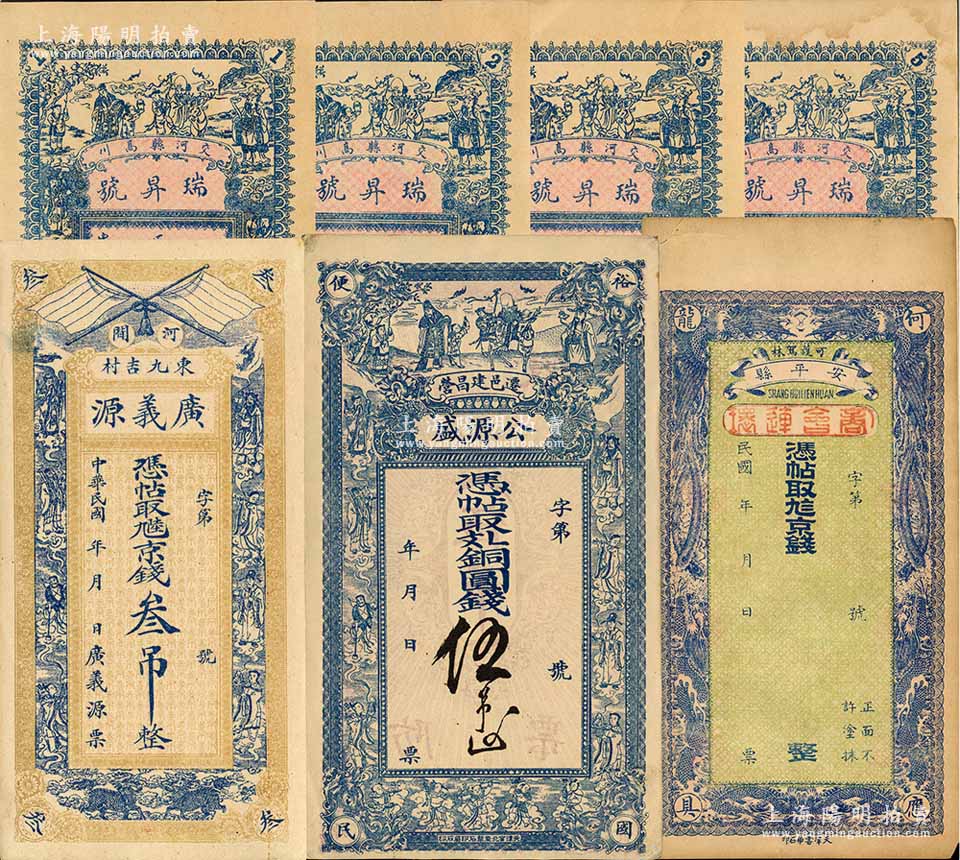 上海陽明拍賣
1
1
川鳥縣河交
號昇瑞
2
川鳥縣河交
號昇瑞
3
川鳥縣河交
號昇瑞
5
川鳥縣河交
號昇瑞
叁
叁
間河
村吉九東
源義廣
字第
號
憑帖取
京錢叁吊整
中華民國 年 月 日廣義源票
叁
叁
便
裕
營昌建邑遷
盛源公
上海陽明拍賣
www.yangmingauction.com
字第
號
憑帖取
銅圓錢伍吊
年 月 日
票
民
國
龍
何
縣平安
民國 年 月 日 票
字第
號
憑帖取
京錢
整
正面不
許塗抹
具
應
上海陽明拍賣
www.yangmingauction.com